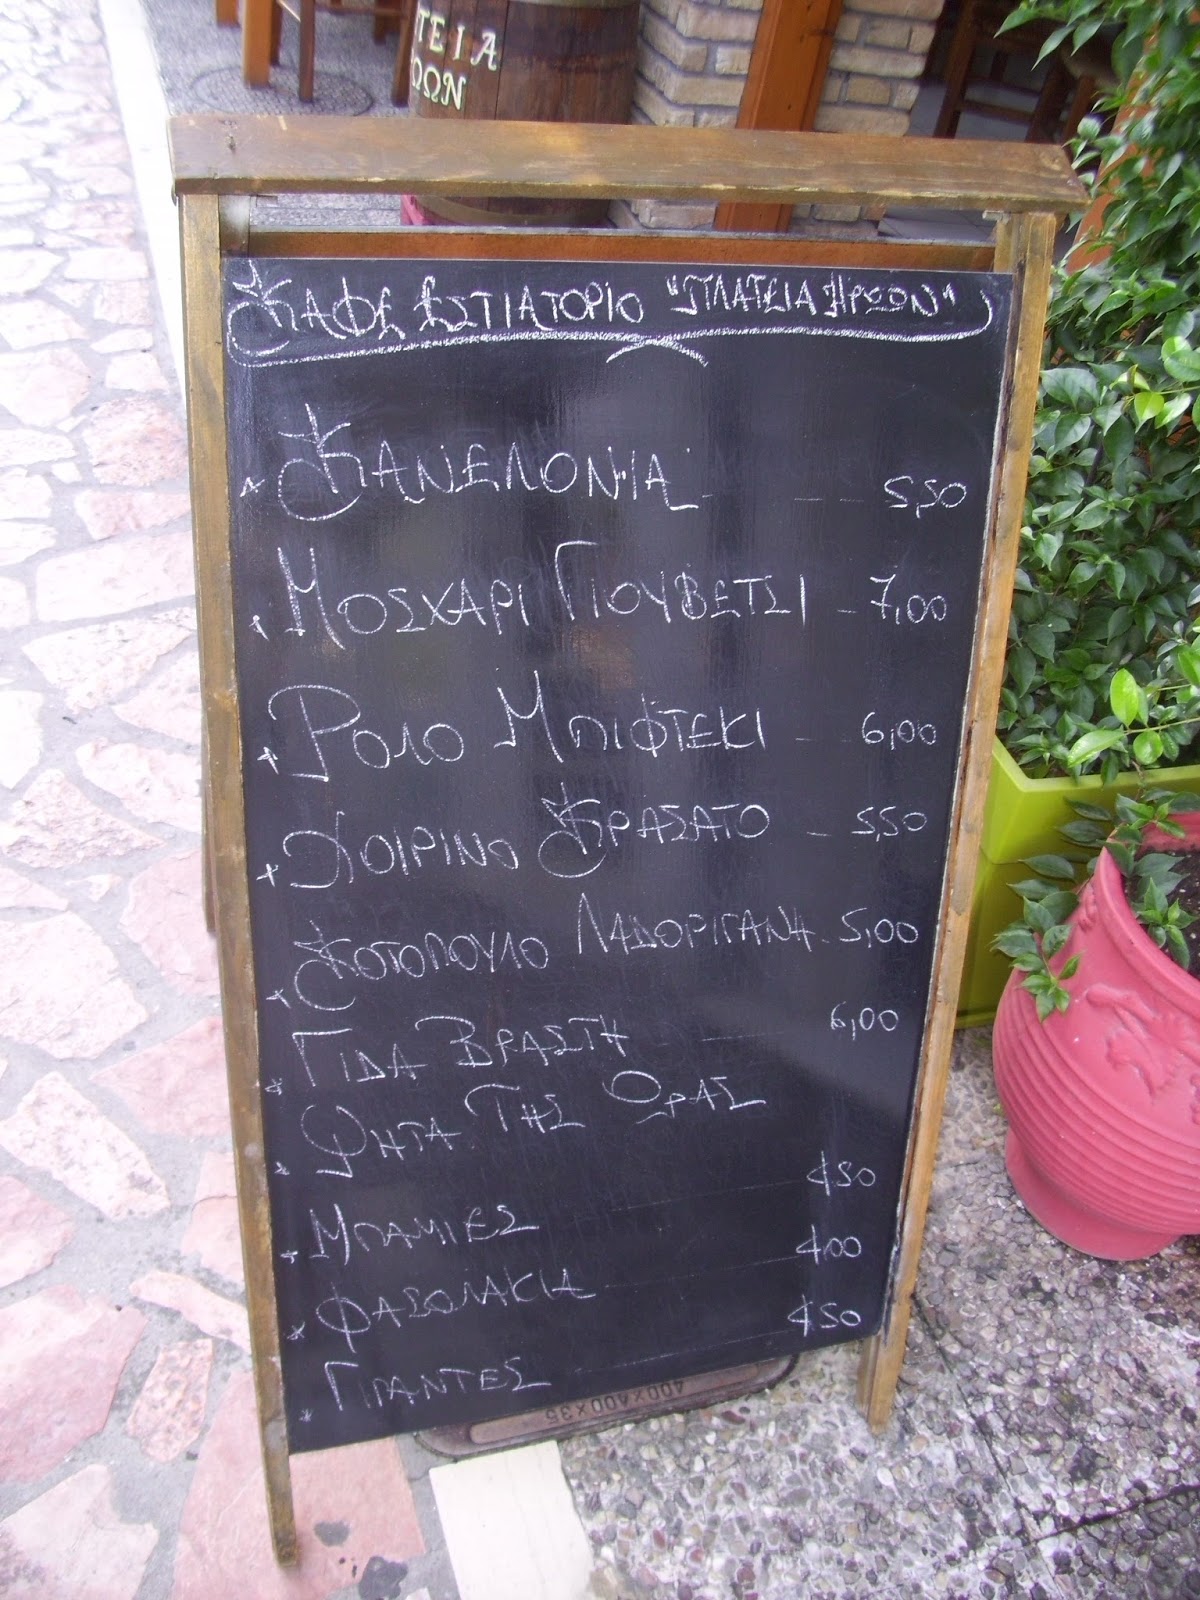 ΤΕΙΑ
ΩΩΝ
ΚΑΦΕ ΕΣΤΙΑΤΟΡΙΟ "ΠΛΑΤΕΙΑ ΗΡΩΩΝ"
* ΚΑΝΕΛΟΝΙΑ 5,50
* ΜΟΣΧΑΡΙ ΓΙΟΥΒΕΤΣΙ - 7,00
* ΡΟΛΟ ΜΠΙΦΤΕΚΙ - 6,00
* ΧΟΙΡΙΝΟ ΚΡΑΣΑΤΟ - 5,50
* ΚΟΤΟΠΟΥΛΟ ΛΑΔΟΡΙΓΑΝΗ - 5,00
* ΓΙΔΑ ΒΡΑΣΤΗ 6,00
* ΨΗΤΑ ΤΗΣ ΩΡΑΣ
* ΜΠΑΜΙΕΣ 4,50
* ΦΑΣΟΛΑΚΙΑ 4,00
* ΓΙΓΑΝΤΕΣ 4,50
400x400x35